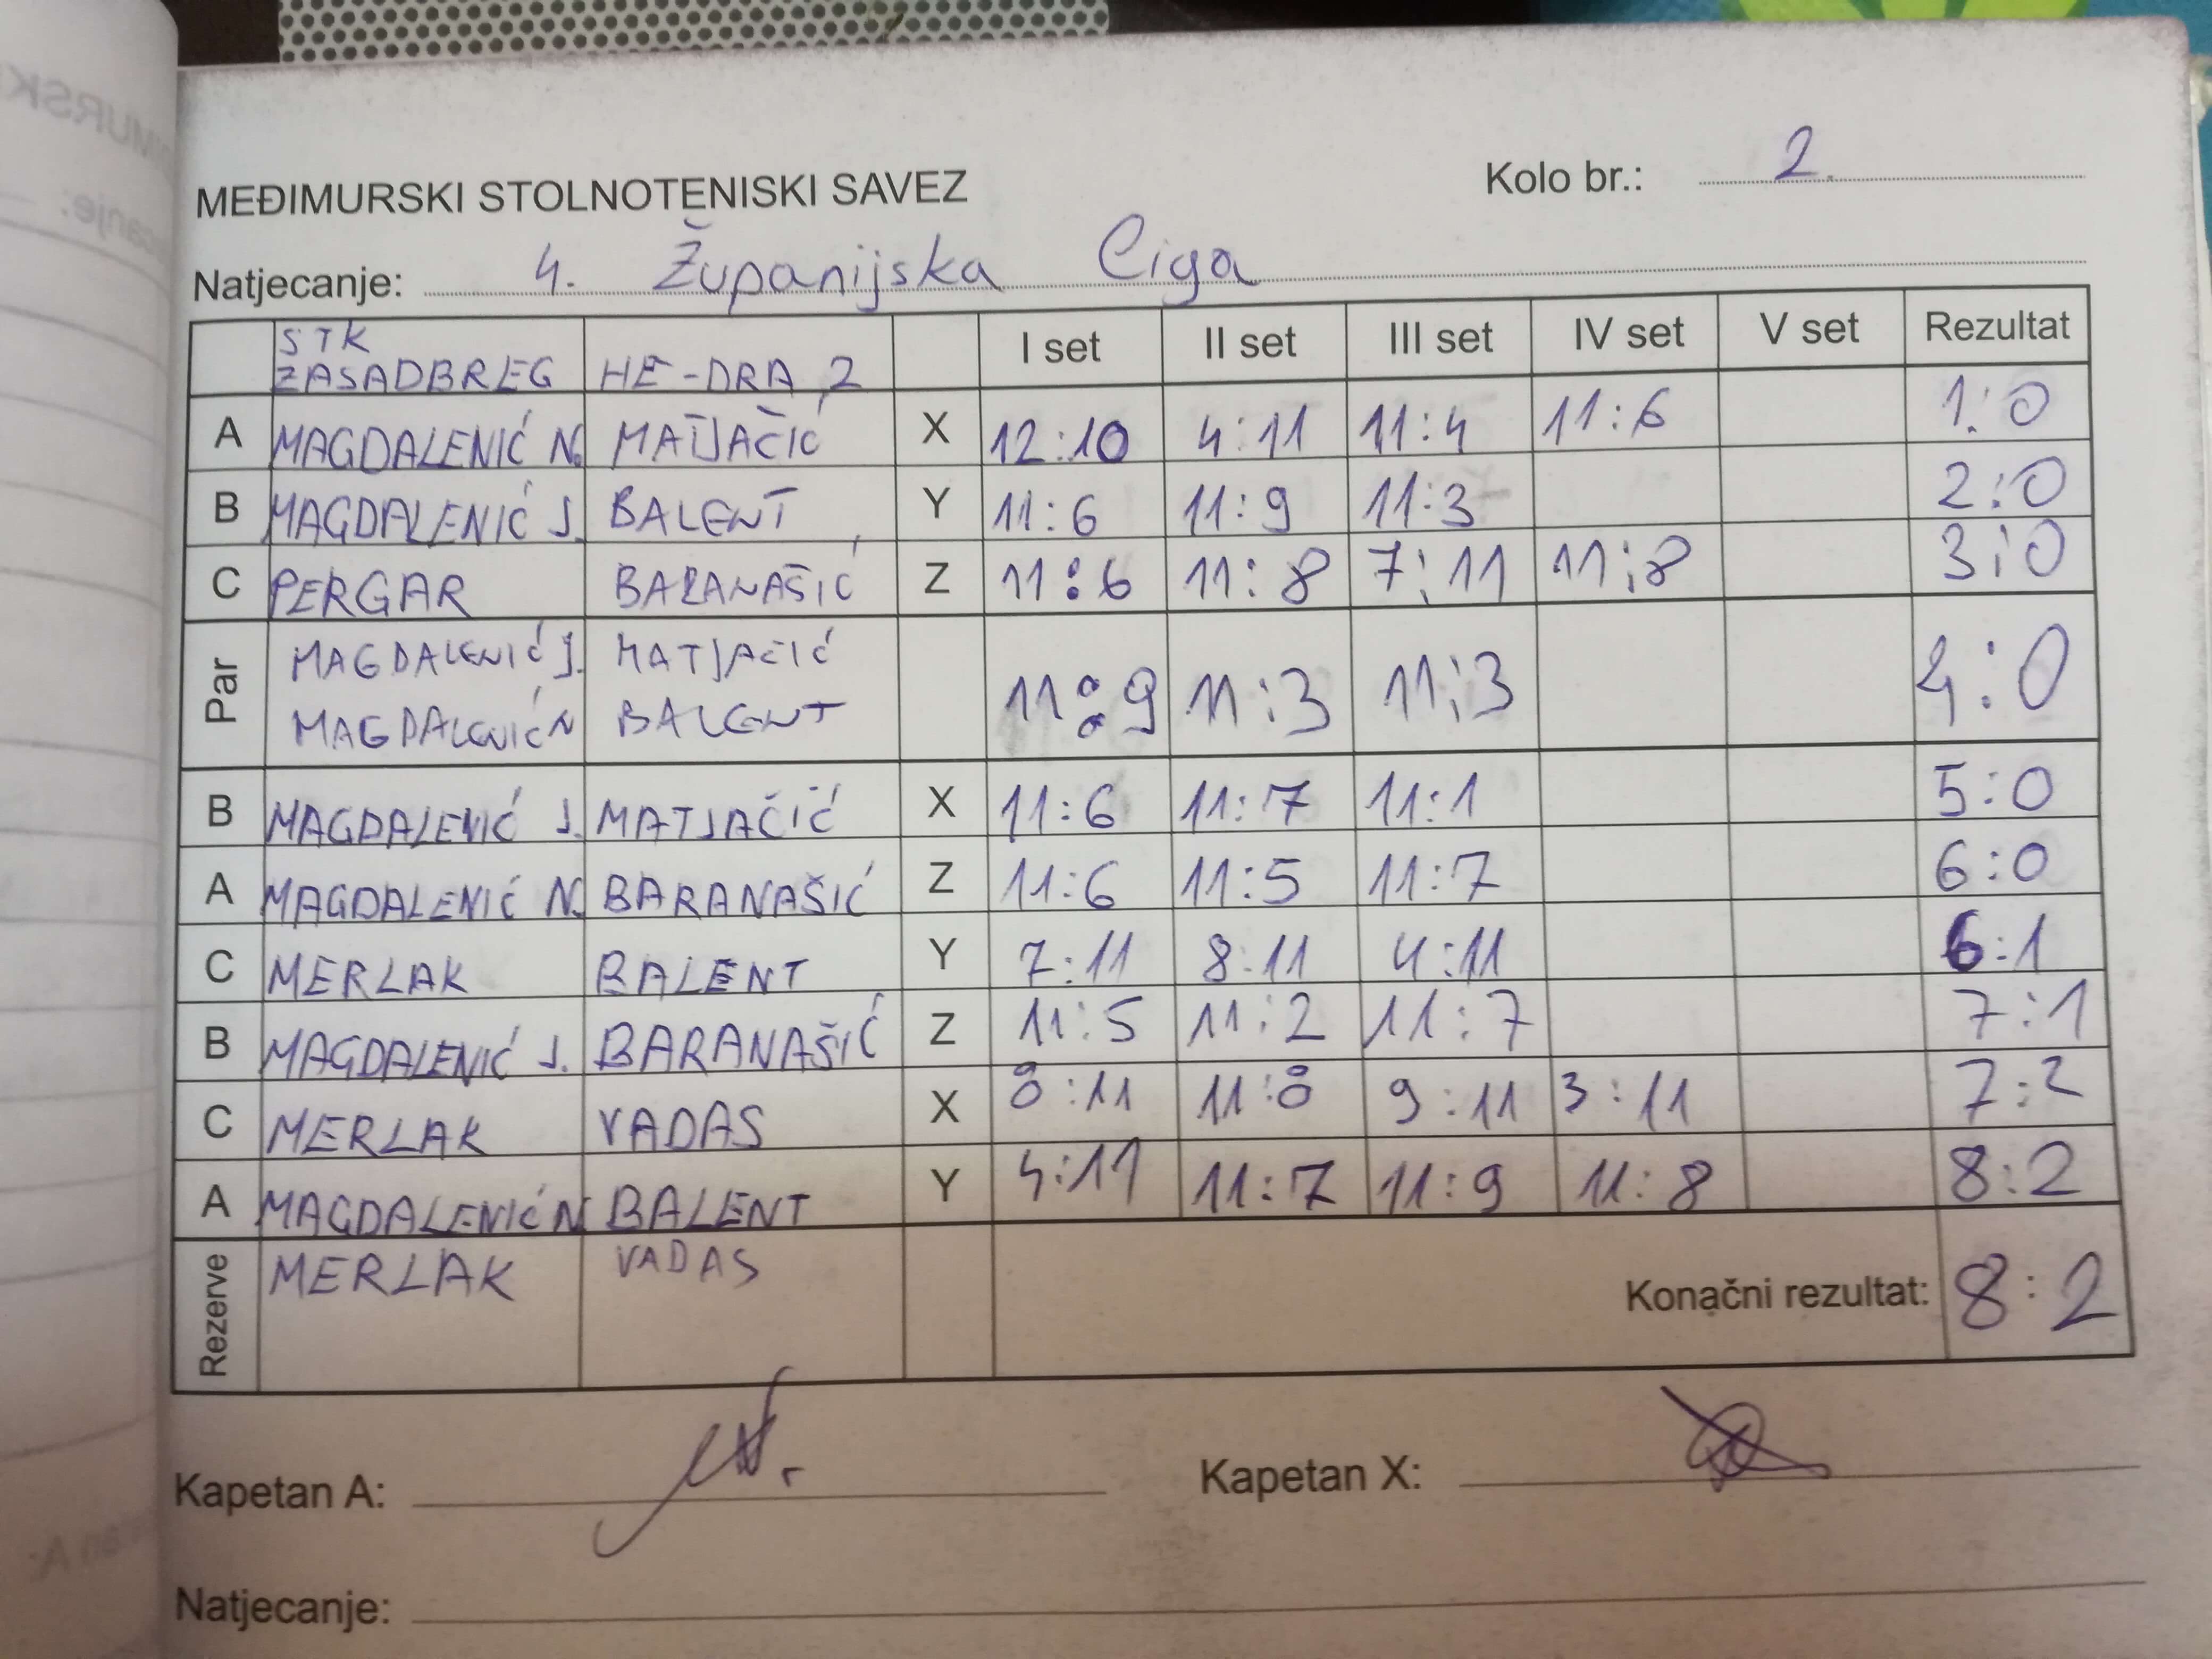 MEĐIMURSKI STOLNOTENISKI SAVEZ
Kolo br.: 2.
Natjecanje: 4. Županijska Liga
STK ZASADBREG HE-DRA 2 I set II set III set IV set V set Rezultat
A MAGDALENIĆ N. MATJAČIĆ X 12:10 4:11 11:4 11:6 1:0
B MAGDALENIĆ J. BALENT Y 11:6 11:9 11:3 2:0
C PERGAR BARANAŠIĆ Z 11:6 11:8 7:11 11:8 3:0
Par MAGDALENIĆ J. MATJAČIĆ
MAGDALENIĆ N BALENT 11:9 11:3 11:3 4:0
B MAGDALENIĆ J. MATJAČIĆ X 11:6 11:7 11:1 5:0
A MAGDALENIĆ N. BARANAŠIĆ Z 11:6 11:5 11:7 6:0
C MERLAK BALENT Y 7:11 8:11 4:11 6:1
B MAGDALENIĆ J. BARANAŠIĆ Z 11:5 11:2 11:7 7:1
C MERLAK VADAS X 8:11 11:8 9:11 3:11 7:2
A MAGDALENIĆ N BALENT Y 4:11 11:7 11:9 11:8 8:2
Rezerve MERLAK VADAS Konačni rezultat: 8:2
Kapetan A: Kapetan X:
Natjecanje: